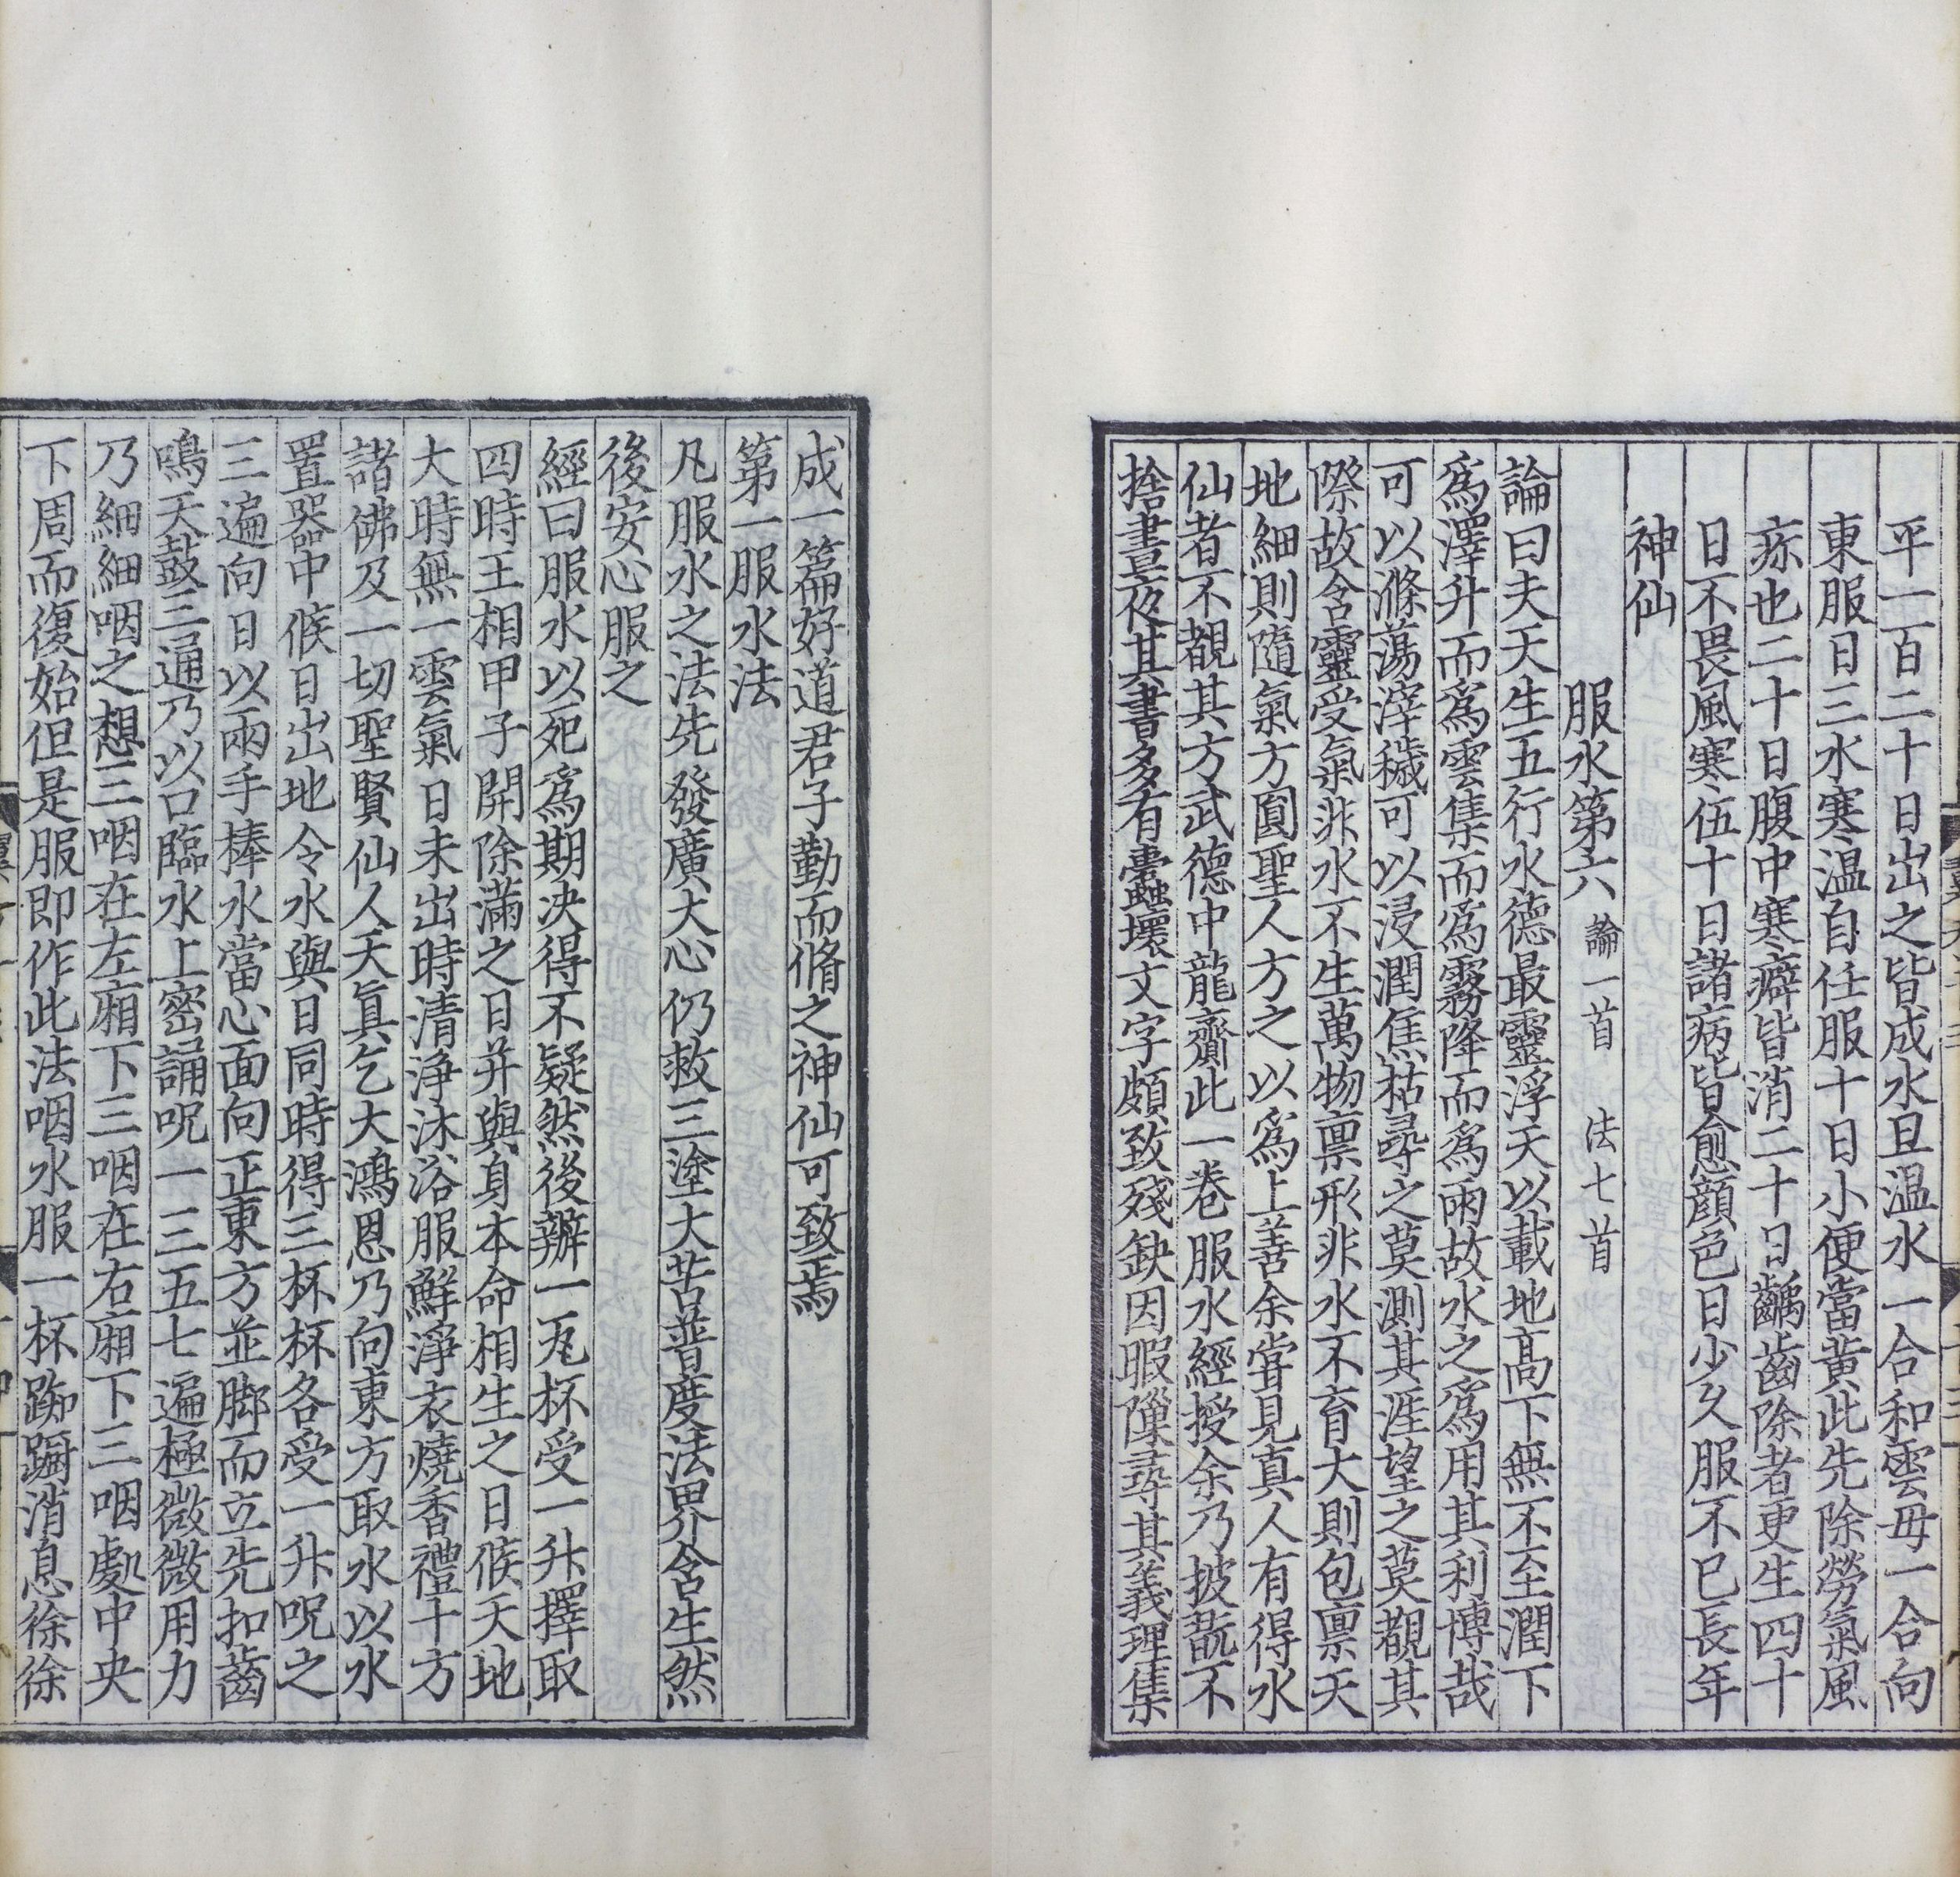 平一百二十日出之皆成水旦温水一合和雲毋一合向
東服日三水寒温自任服十日小便當黄此先除勞氣風
疢也二十日腹中寒癖皆消三十日齲齒除者更生四十
日不畏風寒伍十日諸病皆愈顔色日少久服不已長年
神仙
服水第六 論一首 法七首
論曰夫天生五行水德最靈浮天以載地高下無不至潤下
爲澤升而爲雲集而爲霧降而爲雨故水之爲用其利博哉
可以滌蕩滓穢可以浸潤焦枯尋之莫測其涯望之莫覩其
際故含靈受氣非水不生萬物禀形非水不育大則包禀天
地細則隨氣方圓聖人方之以爲上善余嘗見真人有得水
仙者不覩其方武德中龍齎此一卷服水經授余乃披翫不
捨晝夜其書多有蠹壞文字頗致殘缺因暇隙尋其義理集
成一篇好道君子勤而脩之神仙可致焉
第一服水法
凡服水之法先發廣大心仍救三塗大苦普度法界含生然
後安心服之
經曰服水以死爲期决得不疑然後辦一瓦杯受一升擇取
四時王相甲子開除滿之日并與身本命相生之日候天地
大時無一雲氣日未出時清淨沐浴服鮮淨衣燒香禮十方
諸佛及一切聖賢仙人天真乞大鴻恩乃向東方取水以水
置器中候日出地令水與日同時得三杯杯各受一升呪之
三遍向日以兩手棒水當心面向正東方並脚而立先扣齒
鳴天鼓三通乃以口臨水上密誦呪一三五七遍極微微用力
乃細細咽之想三咽在左廂下三咽在右廂下三咽處中央
下周而復始但是服即作此法咽水服一杯踟躕消息徐徐